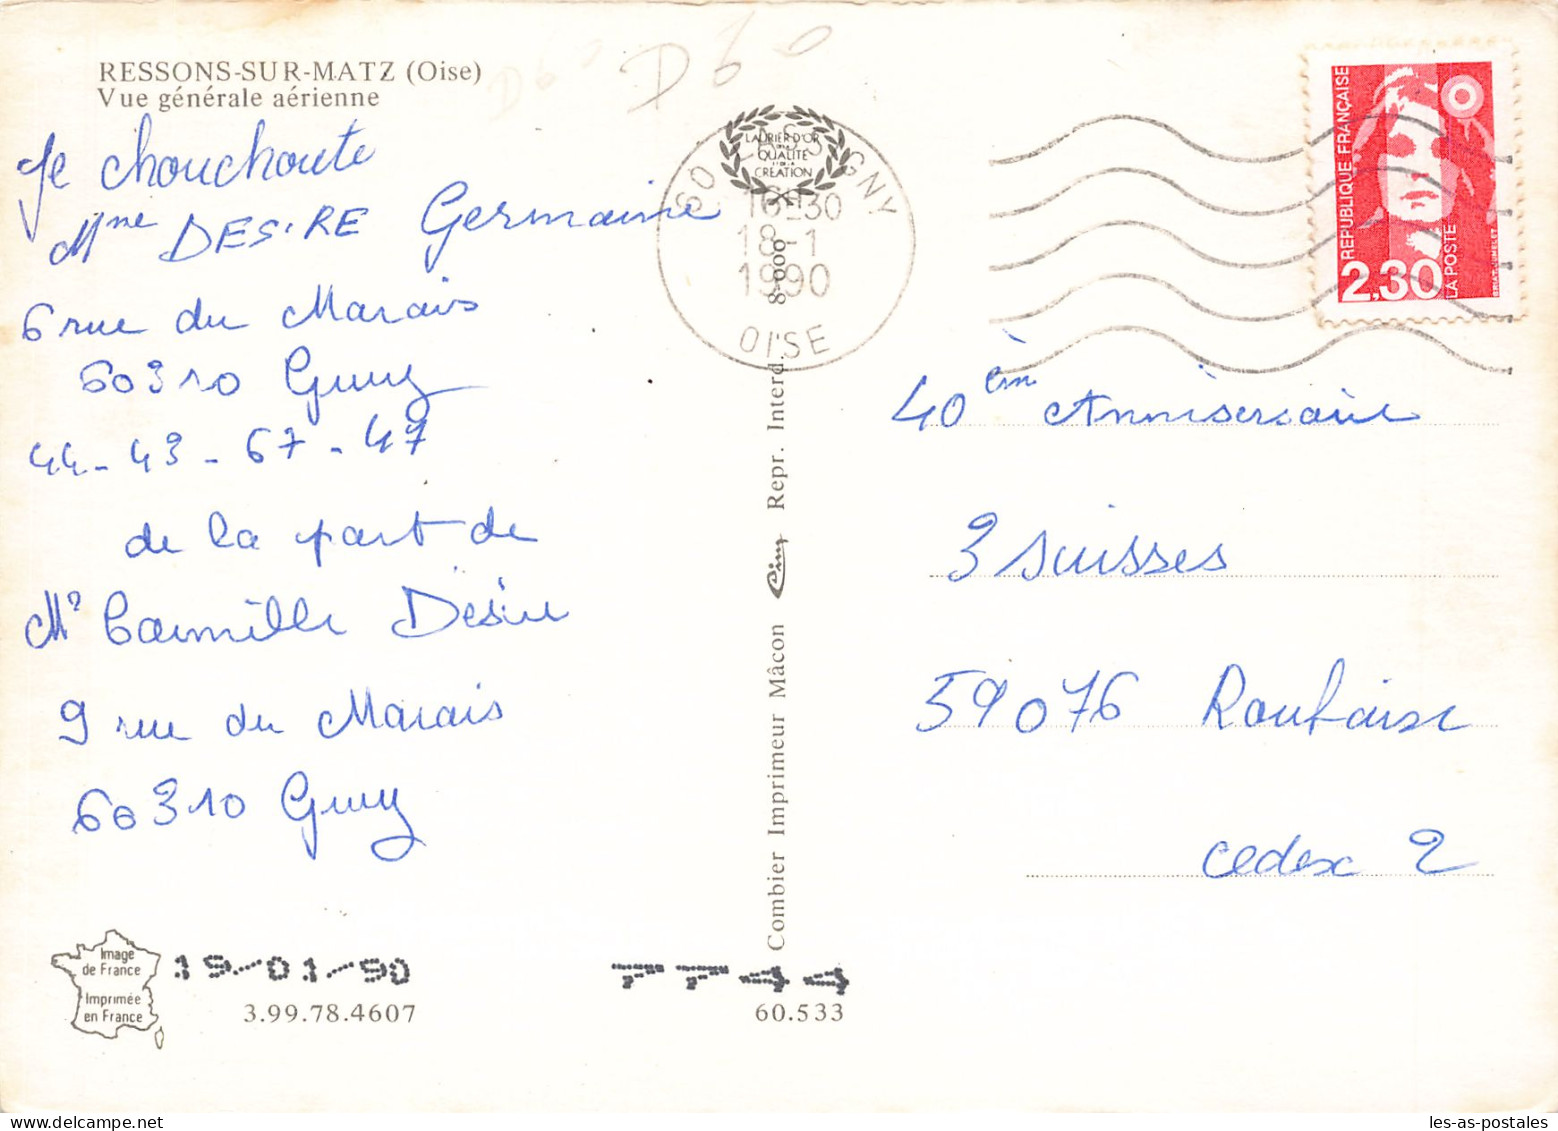 RESSONS-SUR-MATZ (Oise)
Vue générale aérienne
D60
D60
Je chouchoute
Mme DESIRE Germaine
6 rue du Marais
60310 Gury
44-43-67-47
de la part de
Mr Camille Désire
9 rue du Marais
60310 Gury
Image
de France
Imprimée
en France
19/01/90
7744
3.99.78.4607
60.533
LAURIER D'OR
DE LA
QUALITÉ
ET DE LA
CRÉATION
60 LASSIGNY
16H30
18-1
1990
OISE
Combier Imprimeur Mâcon Cim Repr. Interd. 8-000
REPUBLIQUE FRANÇAISE
2,30
LA POSTE
40èm Anniversaire
3 suisses
59076 Roubaix
cedex 2
les-as-postales